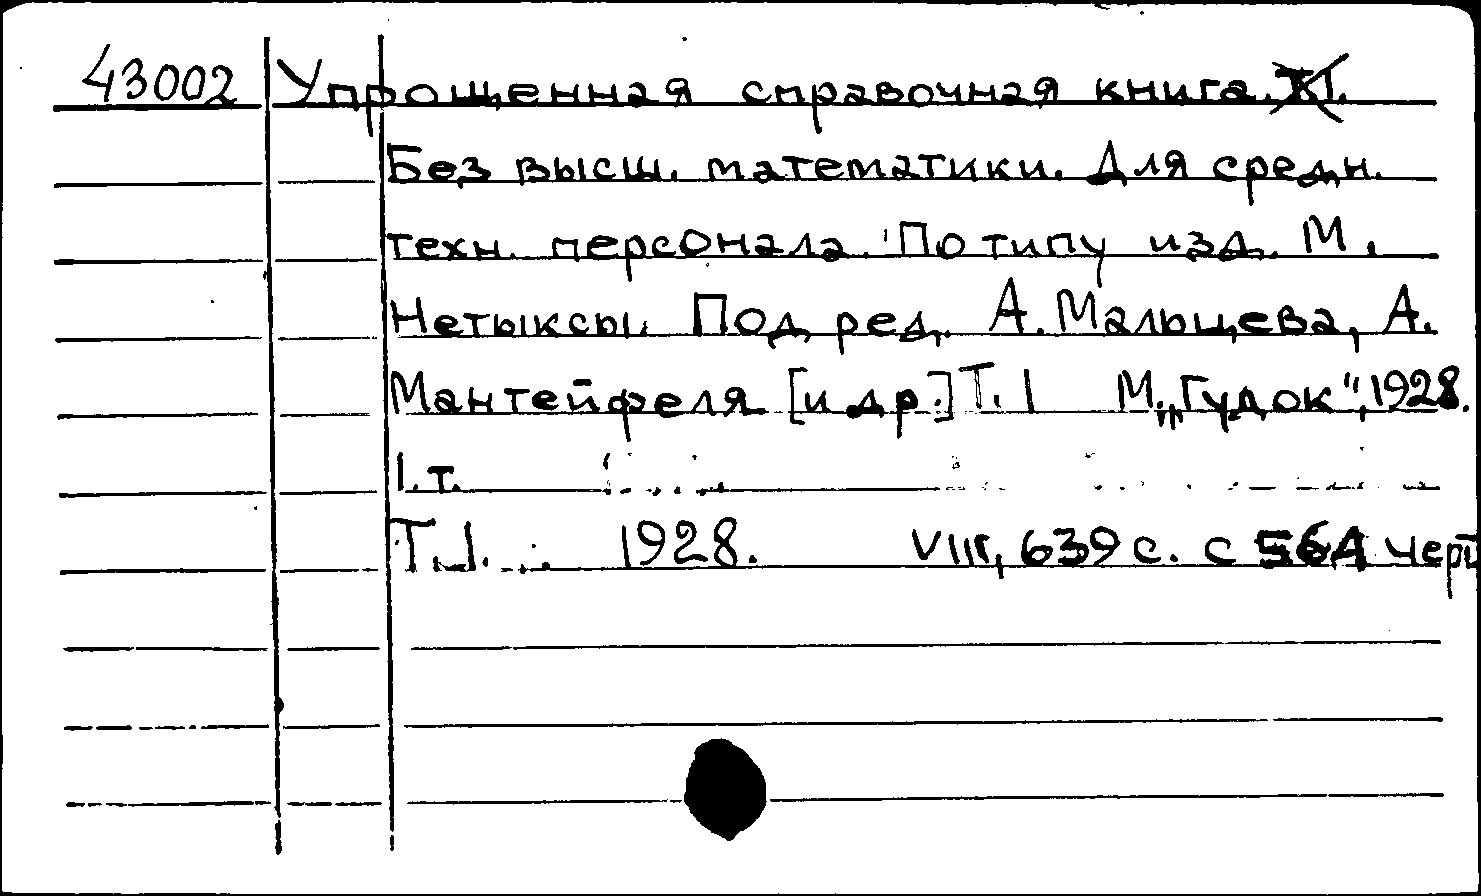 43002 Упрощенная справочная книга.
Без высш. математики. Для средн.
техн. персонала. По типу изд. М.
Нетыксы. Под ред. А. Мальцева, А.
Мантейфеля [и др.] Т. I М., „Гудок“, 1928.
1 т.
Т. I. 1928. VIII, 639 с. с 564 черт